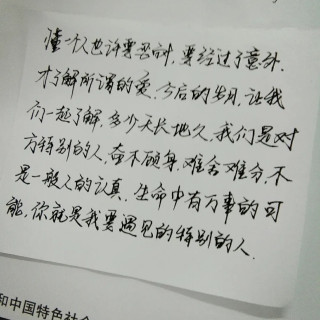 懂一个人也许要忍耐,要经过了意外,
才了解所谓的爱,今后的岁月,让我
们一起了解,多少天长地久,我们是对
方特别的人,奋不顾身,难舍难分,不
是一般人的认真,生命中有万事的可
能,你就是我要遇见的特别的人.
和中国特色社会